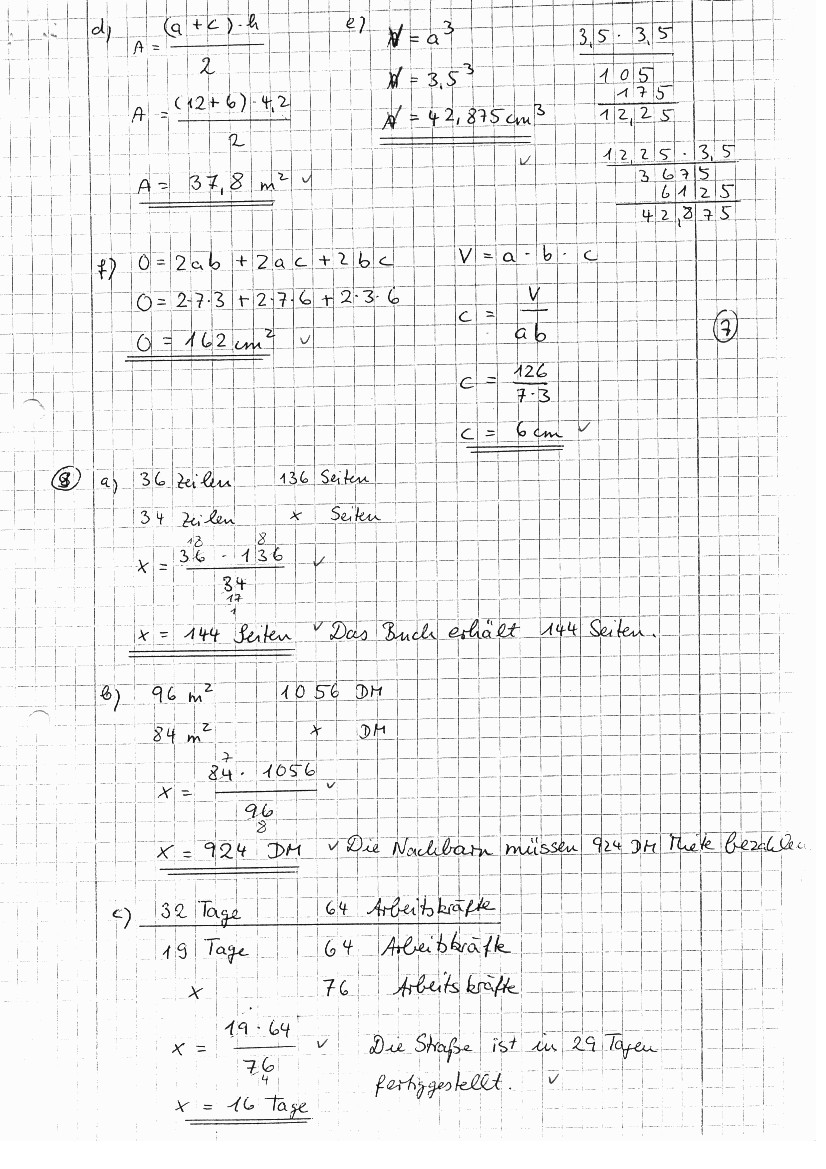 d) A = (a + c) · h / 2
A = (12 + 6) · 4,2 / 2
A = 37,8 m² ✓
e) V = a³
V = 3,5³
V = 42,875 cm³
✓
3,5 · 3,5
105
175
12,25
12,25 · 3,5
3675
6125
42,875
f) O = 2ab + 2ac + 2bc
O = 2·7·3 + 2·7·6 + 2·3·6
O = 162 cm² ✓
V = a · b · c
c = V / ab
c = 126 / 7·3
c = 6 cm ✓
7
8 a) 36 Zeilen 136 Seiten
34 Zeilen x Seiten
18 8
x = 36 · 136 / 34 ✓
17
1
x = 144 Seiten ✓ Das Buch erhält 144 Seiten.
b) 96 m² 1056 DM
84 m² x DM
7
x = 84 · 1056 / 96 ✓
8
x = 924 DM ✓ Die Nachbarn müssen 924 DM Miete bezahlen
c) 32 Tage 64 Arbeitskräfte
19 Tage 64 Arbeitskräfte
x 76 Arbeitskräfte
x = 19 · 64 / 76 ✓ Die Straße ist in 29 Tagen
4
fertiggestellt. ✓
x = 16 Tage